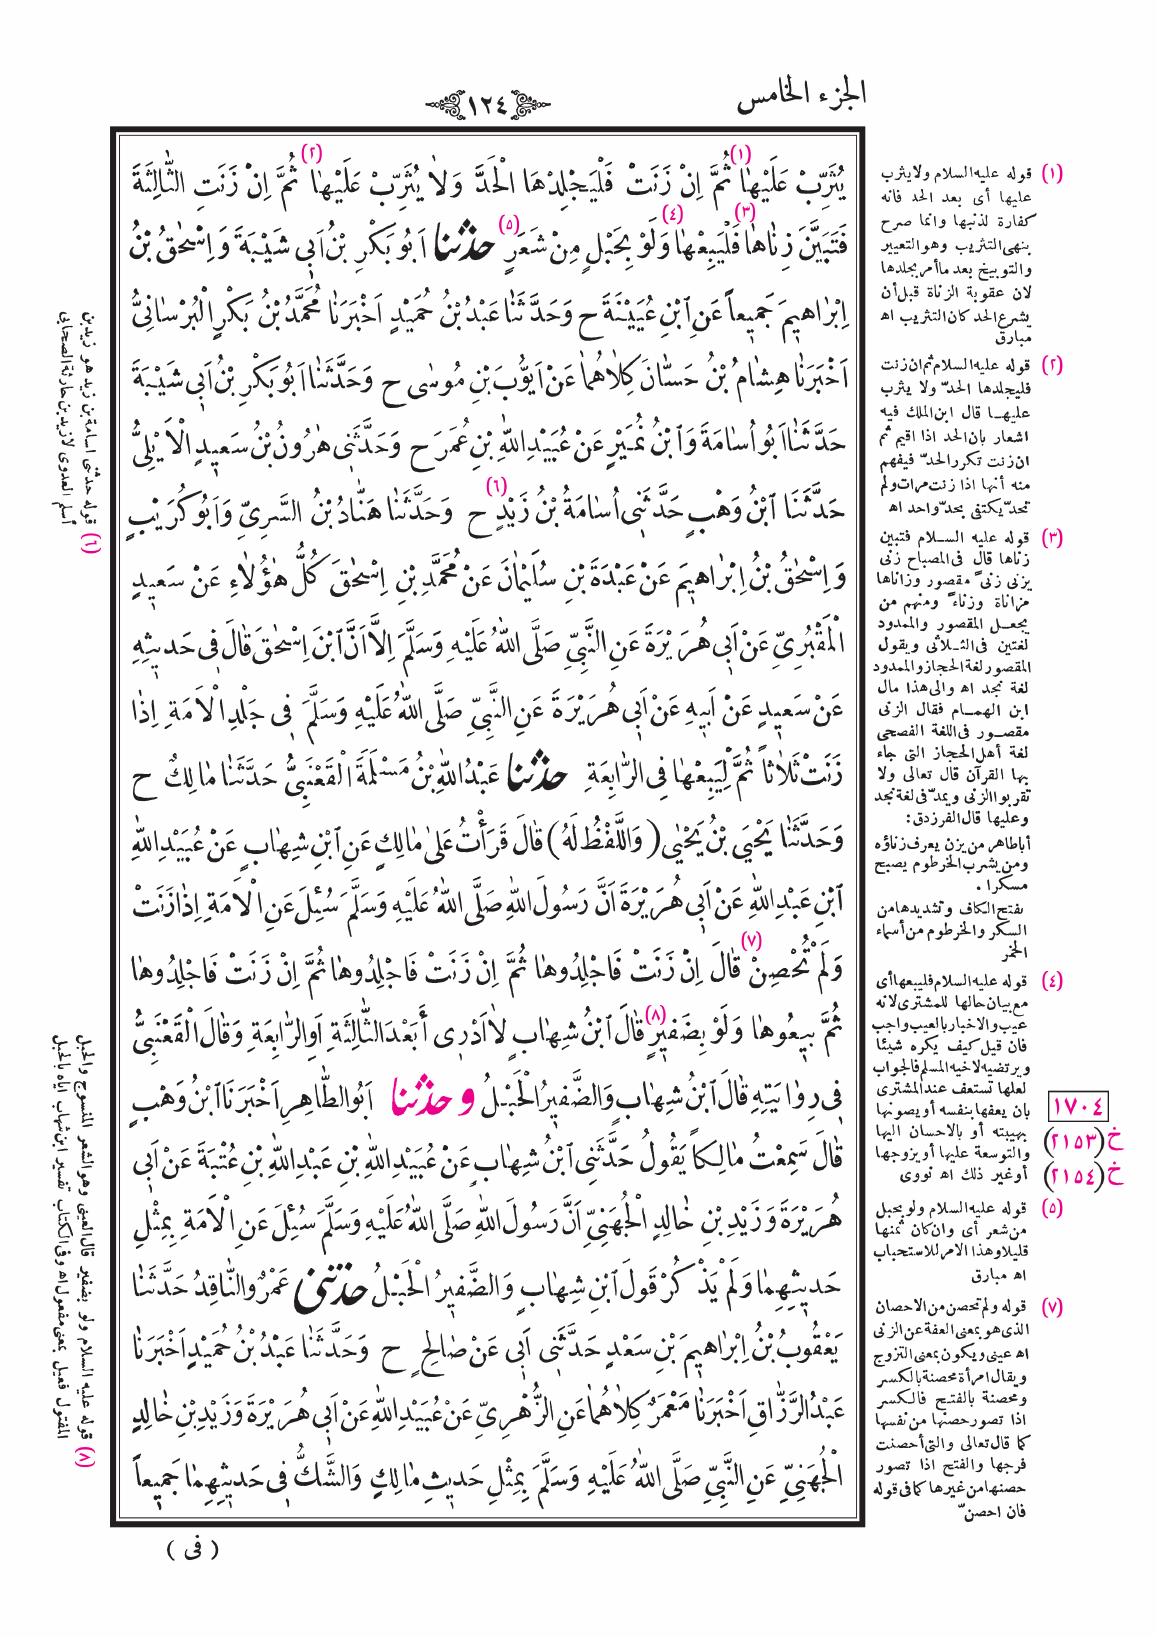 الجزء الخامس
١٢٤
يُثَرِّبْ عَلَيْهَا (١) ثُمَّ اِنْ زَنَتْ فَلْيَجْلِدْهَا الْحَدَّ وَلَا يُثَرِّبْ عَلَيْهَا (٢) ثُمَّ اِنْ زَنَتِ الثَّالِثَةَ
فَتَبَيَّنَ زِنَاهَا (٣) فَلْيَبِعْهَا (٤) وَلَوْ بِحَبْلٍ مِنْ شَعَرٍ (٥) حَدَّثَنَا اَبُو بَكْرِ بْنُ اَبِى شَيْبَةَ وَ اِسْحٰقُ بْنُ
اِبْرَاهِيمَ جَمِيعاً عَنِ ابْنِ عُيَيْنَةَ ح وَحَدَّثَنَا عَبْدُ بْنُ حُمَيْدٍ اَخْبَرَنَا مُحَمَّدُ بْنُ بَكْرٍ الْبُرْسَانِىُّ
اَخْبَرَنَا هِشَامُ بْنُ حَسَّانَ كِلَاهُمَا عَنْ اَيُّوبَ بْنِ مُوسٰى ح وَحَدَّثَنَا اَبُو بَكْرِ بْنُ اَبِى شَيْبَةَ
حَدَّثَنَا اَبُو اُسَامَةَ وَ ابْنُ نُمَيْرٍ عَنْ عُبَيْدِ اللّٰهِ بْنِ عُمَرَ ح وَحَدَّثَنِى هٰرُونُ بْنُ سَعِيدٍ الْاَيْلِىُّ
حَدَّثَنَا ابْنُ وَهْبٍ حَدَّثَنِى اُسَامَةُ بْنُ زَيْدٍ (٦) ح وَحَدَّثَنَا هَنَّادُ بْنُ السَّرِىِّ وَ اَبُو كُرَيْبٍ
وَ اِسْحٰقُ بْنُ اِبْرَاهِيمَ عَنْ عَبْدَةَ بْنِ سُلَيْمَانَ عَنْ مُحَمَّدِ بْنِ اِسْحٰقَ كُلُّ هٰؤُلَاءِ عَنْ سَعِيدٍ
الْمَقْبُرِىِّ عَنْ اَبِى هُرَيْرَةَ عَنِ النَّبِىِّ صَلَّى اللّٰهُ عَلَيْهِ وَسَلَّمَ اِلَّا اَنَّ ابْنَ اِسْحٰقَ قَالَ فِى حَدِيثِهِ
عَنْ سَعِيدٍ عَنْ اَبِيهِ عَنْ اَبِى هُرَيْرَةَ عَنِ النَّبِىِّ صَلَّى اللّٰهُ عَلَيْهِ وَسَلَّمَ فِى جَلْدِ الْاَمَةِ اِذَا
زَنَتْ ثَلَاثاً ثُمَّ لْيَبِعْهَا فِى الرَّابِعَةِ حَدَّثَنَا عَبْدُ اللّٰهِ بْنُ مَسْلَمَةَ الْقَعْنَبِىُّ حَدَّثَنَا مَالِكٌ ح
وَحَدَّثَنَا يَحْيَى بْنُ يَحْيٰى ( وَاللَّفْظُ لَهُ ) قَالَ قَرَأْتُ عَلٰى مَالِكٍ عَنِ ابْنِ شِهَابٍ عَنْ عُبَيْدِ اللّٰهِ
ابْنِ عَبْدِ اللّٰهِ عَنْ اَبِى هُرَيْرَةَ اَنَّ رَسُولَ اللّٰهِ صَلَّى اللّٰهُ عَلَيْهِ وَسَلَّمَ سُئِلَ عَنِ الْاَمَةِ اِذَا زَنَتْ
وَلَمْ تُحْصِنْ (٧) قَالَ اِنْ زَنَتْ فَاجْلِدُوهَا ثُمَّ اِنْ زَنَتْ فَاجْلِدُوهَا ثُمَّ اِنْ زَنَتْ فَاجْلِدُوهَا
ثُمَّ بِيعُوهَا وَلَوْ بِضَفِيرٍ (٨) قَالَ ابْنُ شِهَابٍ لَا اَدْرِى أَبَعْدَ الثَّالِثَةِ اَوِ الرَّابِعَةِ وَقَالَ الْقَعْنَبِىُّ
فِى رِوَايَتِهِ قَالَ ابْنُ شِهَابٍ وَالضَّفِيرُ الْحَبْلُ وحَدَّثَنَا اَبُو الطَّاهِرِ اَخْبَرَنَا ابْنُ وَهْبٍ
قَالَ سَمِعْتُ مَالِكاً يَقُولُ حَدَّثَنِى ابْنُ شِهَابٍ عَنْ عُبَيْدِ اللّٰهِ بْنِ عَبْدِ اللّٰهِ بْنِ عُتْبَةَ عَنْ اَبِى
هُرَيْرَةَ وَ زَيْدِ بْنِ خَالِدٍ الْجُهَنِىِّ اَنَّ رَسُولَ اللّٰهِ صَلَّى اللّٰهُ عَلَيْهِ وَسَلَّمَ سُئِلَ عَنِ الْاَمَةِ بِمِثْلِ
حَدِيثِهِمَا وَلَمْ يَذْكُرْ قَوْلَ ابْنِ شِهَابٍ وَالضَّفِيرُ الْحَبْلُ حَدَّثَنِى عَمْرٌو النَّاقِدُ حَدَّثَنَا
يَعْقُوبُ بْنُ اِبْرَاهِيمَ بْنِ سَعْدٍ حَدَّثَنِى اَبِى عَنْ صَالِحٍ ح وَحَدَّثَنَا عَبْدُ بْنُ حُمَيْدٍ اَخْبَرَنَا
عَبْدُ الرَّزَّاقِ اَخْبَرَنَا مَعْمَرٌ كِلَاهُمَا عَنِ الزُّهْرِىِّ عَنْ عُبَيْدِ اللّٰهِ عَنْ اَبِى هُرَيْرَةَ وَ زَيْدِ بْنِ خَالِدٍ
الْجُهَنِىِّ عَنِ النَّبِىِّ صَلَّى اللّٰهُ عَلَيْهِ وَسَلَّمَ بِمِثْلِ حَدِيثِ مَالِكٍ وَالشَّكُّ فِى حَدِيثِهِمَا جَمِيعاً
( فى )
(١) قوله عليه السلام ولا يثرب
عليها أى بعد الحد فانه
كفارة لذنبها وانما صرح
بنهى التثريب وهو التعيير
والتوبيخ بعد ما أمر بجلدها
لان عقوبة الزناة قبل أن
يشرع الحد كان التثريب اه
مبارق
(٢) قوله عليه السلام ثم ان زنت
فليجلدها الحدّ ولا يثرب
عليهـا قال ابن الملك فيه
اشعار بان الحد اذا اقيم ثم
ان زنت تكرر الحدّ فيفهم
منه أنها اذا زنت مرات ولم
تحدّ يكتفى بحدّ واحد اه
(٣) قوله عليه السـلام فتبين
زناها قال فى المصباح زنى
يزنى زنىً مقصور وزاناها
مزاناة وزناءً ومنهم من
يجعـل المقصور والممدود
لغتين فى الثـلاثى ويقول
المقصور لغة الحجاز والممدود
لغة نجد اه والى هذا مال
ابن الهمـام فقال الزنى
مقصـور فى اللغة الفصحى
لغة أهل الحجاز التى جاء
بها القرآن قال تعالى ولا
تقربوا الزنى ويمدّ فى لغة نجد
وعليها قال الفرزدق:
أباطاهر من يزن يعرف زناؤه
ومن يشرب الخرطوم يصبح
مسكرا .
بفتح الكاف وتشديدها من
السكر والخرطوم من أسماء
الخمر
(٤) قوله عليه السلام فليبعها أى
مع بيان حالها للمشترى لانه
عيب والاخبار بالعيب واجب
فان قيل كيف يكره شيئا
ويرتضيه لاخيه المسلم فالجواب
لعلها تستعف عند المشترى
بان يعفها بنفسه أو يصونها
بهيبته أو بالاحسان اليها
والتوسعة عليها أو يزوجها
أو غير ذلك اه نووى
(٥) قوله عليه السلام ولو بحبل
من شعر أى وان كان ثمنها
قليلا وهذا الامر للاستحباب
اه مبارق
(٧) قوله ولم تحصن من الاحصان
الذى هو بمعنى العفة عن الزنى
اه عينى ويكون بمعنى التزوج
ويقال امرأة محصنة بالكسر
ومحصنة بالفتـح فالكسر
اذا تصور حصنها من نفسها
كما قال تعالى والتى أحصنت
فرجها والفتح اذا تصور
حصنها من غيرها كما فى قوله
فان احصنّ
١٧٠٤
خ (٢١٥٣)
خ (٢١٥٤)
(٦) قوله حدثنى اسامة بن زيد هو زيد بن
أسلم العدوى لا زيد بن حارثة الصحابى
(٨) قوله عليه السلام ولو بضفير قال العينى وهو الشعر المنسوج والحبل
المفتول فعيل بمعنى مفعول اه وفى الكتاب تفسير ابن شهاب اياه بالحبل